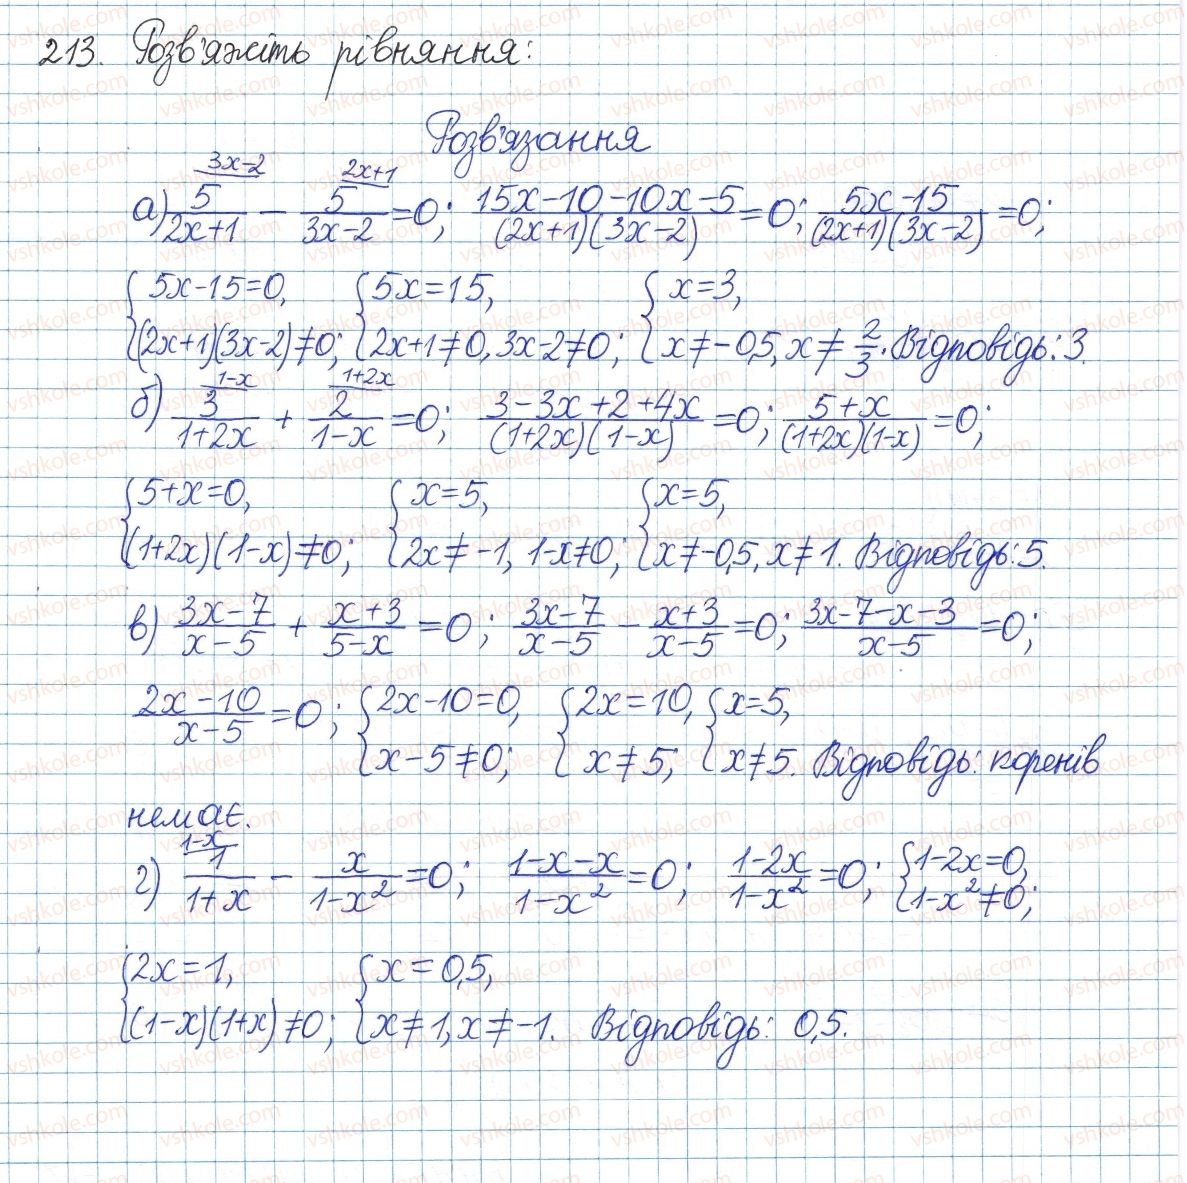 213. Розв'яжіть рівняння:
Розв'язання
а) 5/(2x+1) (3x-2) - 5/(3x-2) (2x+1) = 0; (15x-10-10x-5)/((2x+1)(3x-2)) = 0; (5x-15)/((2x+1)(3x-2)) = 0;
{5x-15=0, (2x+1)(3x-2)≠0; {5x=15, 2x+1≠0, 3x-2≠0; {x=3, x≠-0,5, x≠2/3. Відповідь: 3.
б) 3/(1+2x) (1-x) + 2/(1-x) (1+2x) = 0; (3-3x+2+4x)/((1+2x)(1-x)) = 0; (5+x)/((1+2x)(1-x)) = 0;
{5+x=0, (1+2x)(1-x)≠0; {x=5, 2x≠-1, 1-x≠0; {x=5, x≠-0,5, x≠1. Відповідь: 5.
в) (3x-7)/(x-5) + (x+3)/(5-x) = 0; (3x-7)/(x-5) - (x+3)/(x-5) = 0; (3x-7-x-3)/(x-5) = 0;
(2x-10)/(x-5) = 0; {2x-10=0, x-5≠0; {2x=10, x≠5; {x=5, x≠5. Відповідь: коренів
немає.
г) 1/(1+x) (1-x) - x/(1-x²) = 0; (1-x-x)/(1-x²) = 0; (1-2x)/(1-x²) = 0; {1-2x=0, 1-x²≠0;
{2x=1, (1-x)(1+x)≠0; {x=0,5, x≠1, x≠-1. Відповідь: 0,5.